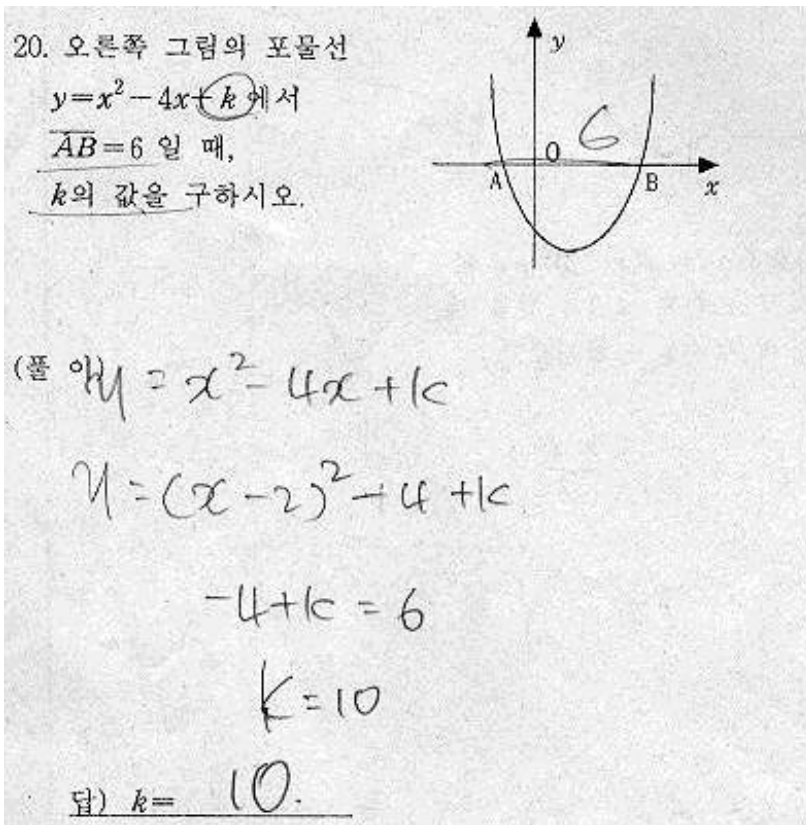 20. 오른쪽 그림의 포물선
y=x²-4x+k에서
AB=6 일 때,
k의 값을 구하시오.
y
O
6
A
B
x
(풀 이)
y=x²-4x+k
y=(x-2)²-4+k
-4+k=6
k=10
답) k= 10.